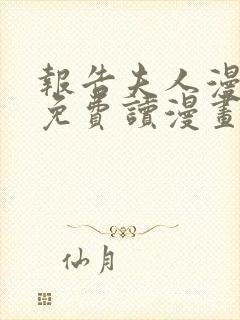 報告夫人漫
免費讀漫畫
仙月